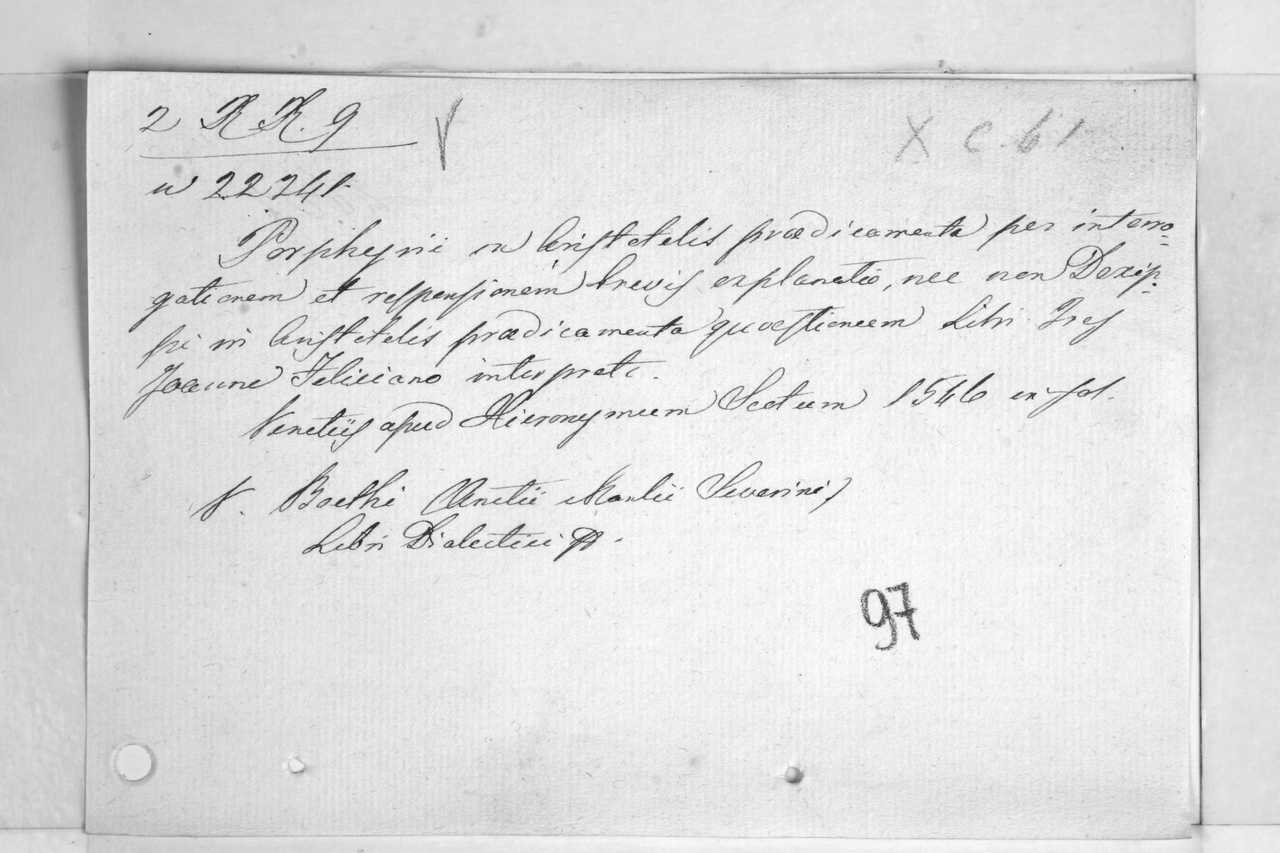 2 K K. 9
V
X C. 61
n 22241.
Porphyrii in Aristotelis prædicamenta per interro=
gationem et responsionem brevis explanatio, nec non Dexip=
pi in Aristotelis prædicamenta quæstionum Libri Tres
Joanne Feliciano interprete.
Venetiis apud Hieronymum Scotum 1546 in fol.
V. Boethi (Anitii Manlii Severini)
Libri Dialectici
97